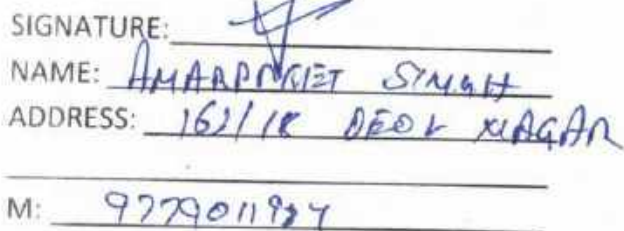 SIGNATURE:
NAME: AMARPREET SINGH
ADDRESS: 162/18 DEOL NAGAR
M: